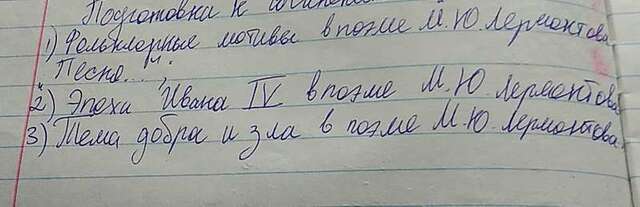 Подготовка к сочинен
1) Фольклорные мотивы в поэме М.Ю. Лермонтова
"Песня...";
2) Эпоха Ивана IV в поэме М.Ю. Лермонтова
3) Тема добра и зла в поэме М.Ю. Лермонтова.